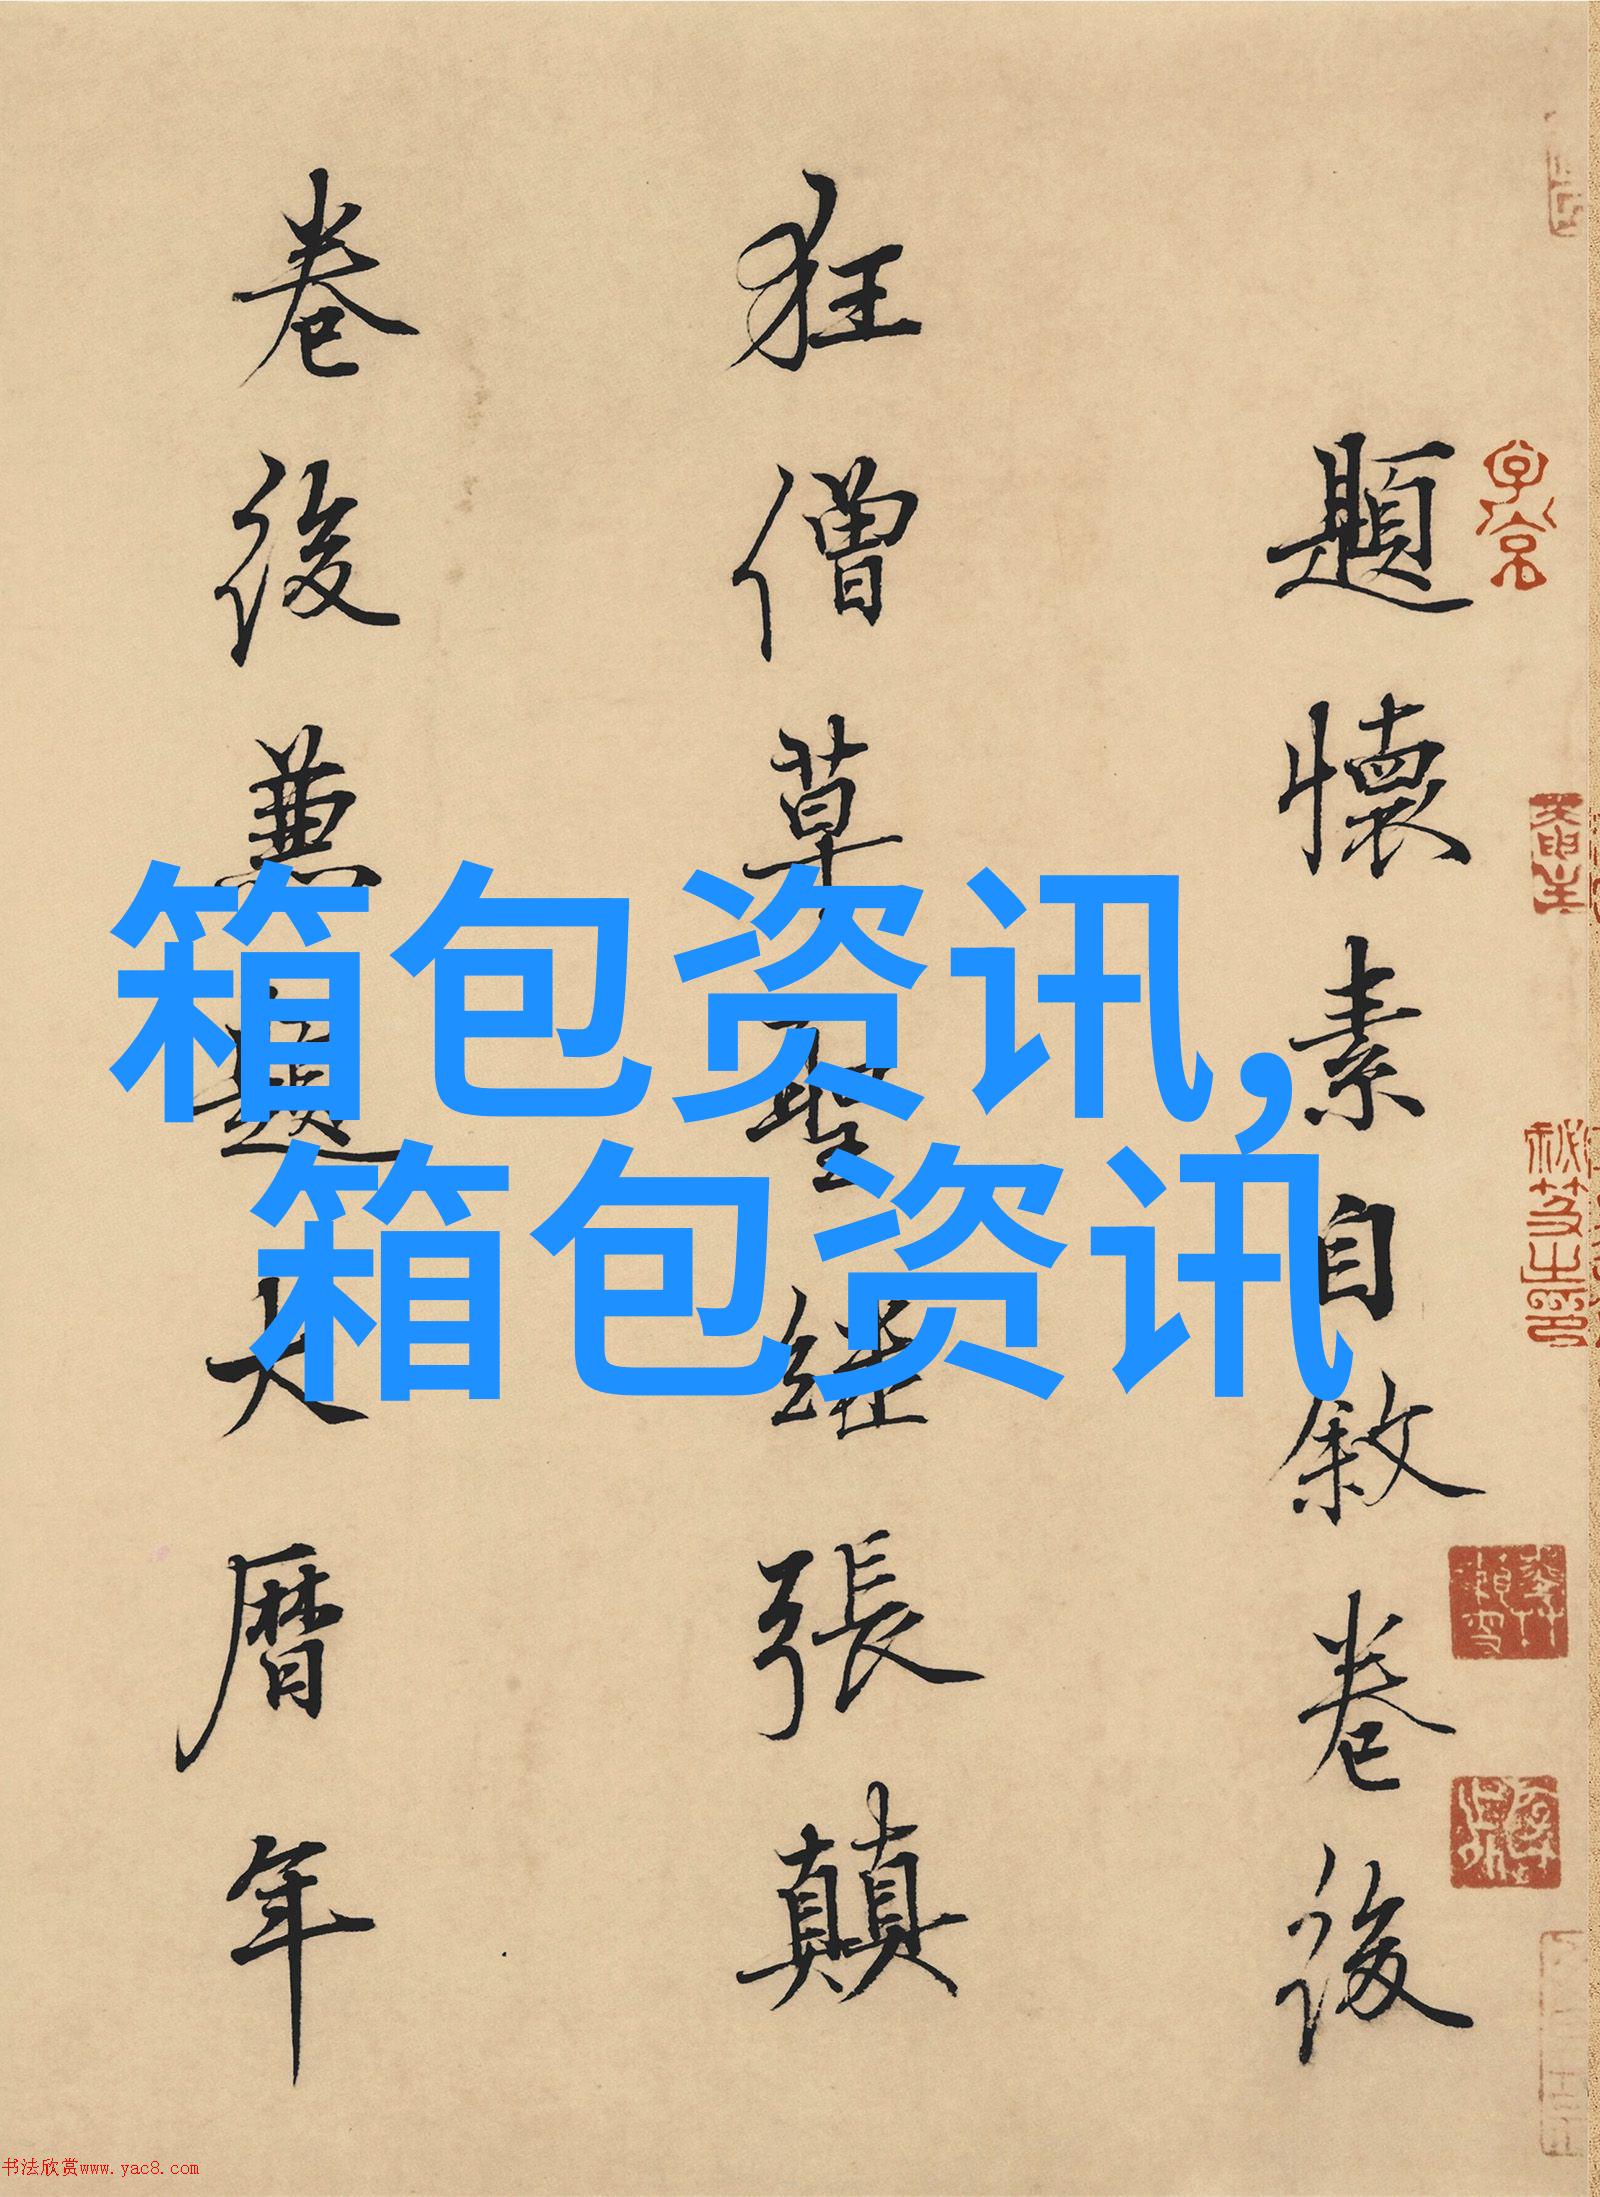 題懷素自敘卷後
狂僧草聖继張顛
卷後兼題大暦年
箱包资讯,
箱包资讯
书法欣赏www.yac8.com